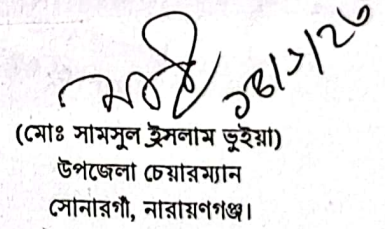 (মোঃ সামসুল ইসলাম ভুইয়া)
উপজেলা চেয়ারম্যান
সোনারগাঁ, নারায়ণগঞ্জ।